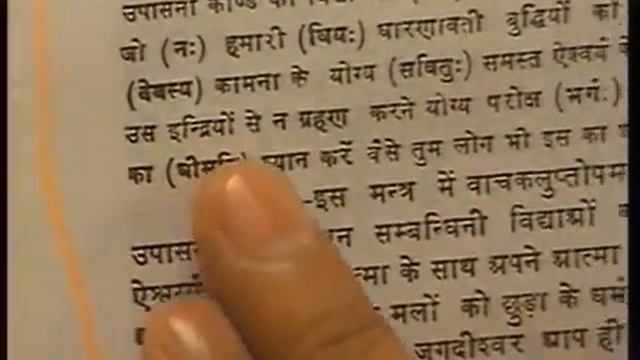 उपासना काण्ड का
जो (नः) हमारी (धियः) धारणावती बुद्धियों को
(देवस्य) कामना के योग्य (सवितुः) समस्त ऐश्वर्य
उस इन्द्रियों से न ग्रहण करने योग्य परोक्ष (भर्गः)
का ध्यान करें वैसे तुम लोग भी इस का
-इस मन्त्र में वाचकलुप्तोपम
सम्बन्धिनी विद्याओं
के साथ अपने आत्मा
मलों को छुड़ा के
जगदीश्वर आप ही